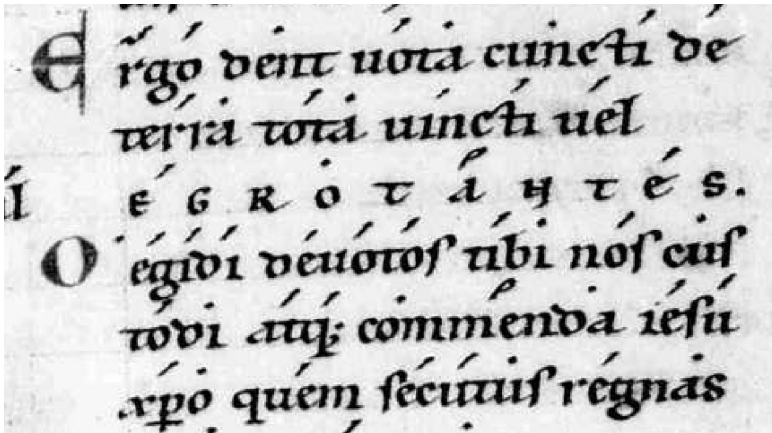 Ergo dent uota cuncti de
terra tota uincti uel
EGROTANTES.
O egidi deuotos tibi nos cus
todi atq; commenda iesu
xpo quem secutus regnas